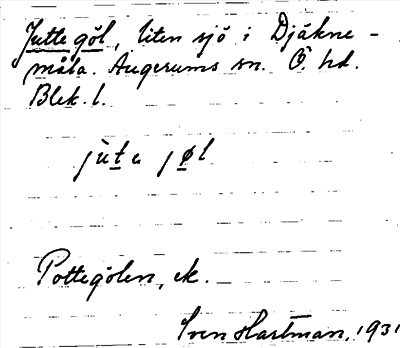 Jutte göl, liten sjö i Djäkne-
måla. Augerums sn. Ö. hd.
Blek. l.
jùte jøl
Pottegölen, ek.
Sven Hartman, 1931